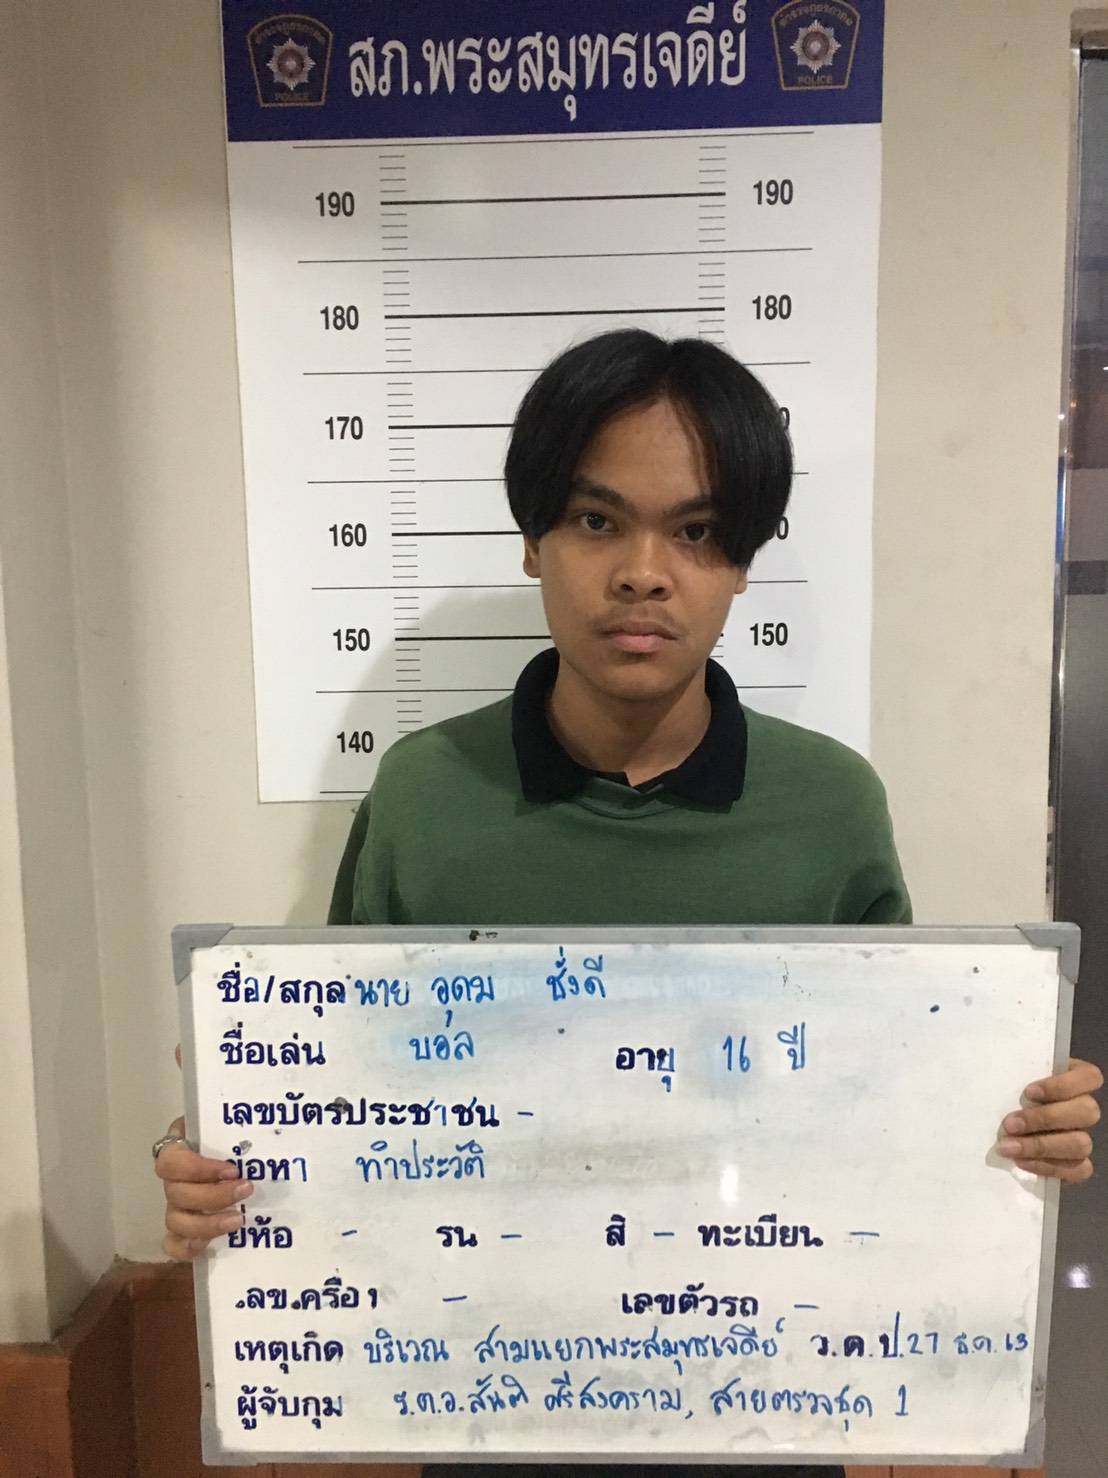 สภ.พระสมุทรเจดีย์
POLICE POLICE
190 190
180 180
170
160
150 150
140
ชื่อ/สกุล นาย อุดม ชั่งดี
ชื่อเล่น บอล อายุ 16 ปี
เลขบัตรประชาชน -
ข้อหา ทำประวัติ
ยี่ห้อ - รุน - สิ - ทะเบียน -
ลข ครือ - เลขตัวรถ -
เหตุเกิด บริเวณ สามแยกพระสมุทรเจดีย์ ว.ด.ป. 27 ธ.ค. 63
ผู้จับกุม ร.ต.อ. สันติ ศรีสงคราม, สายตรวจชุด 1